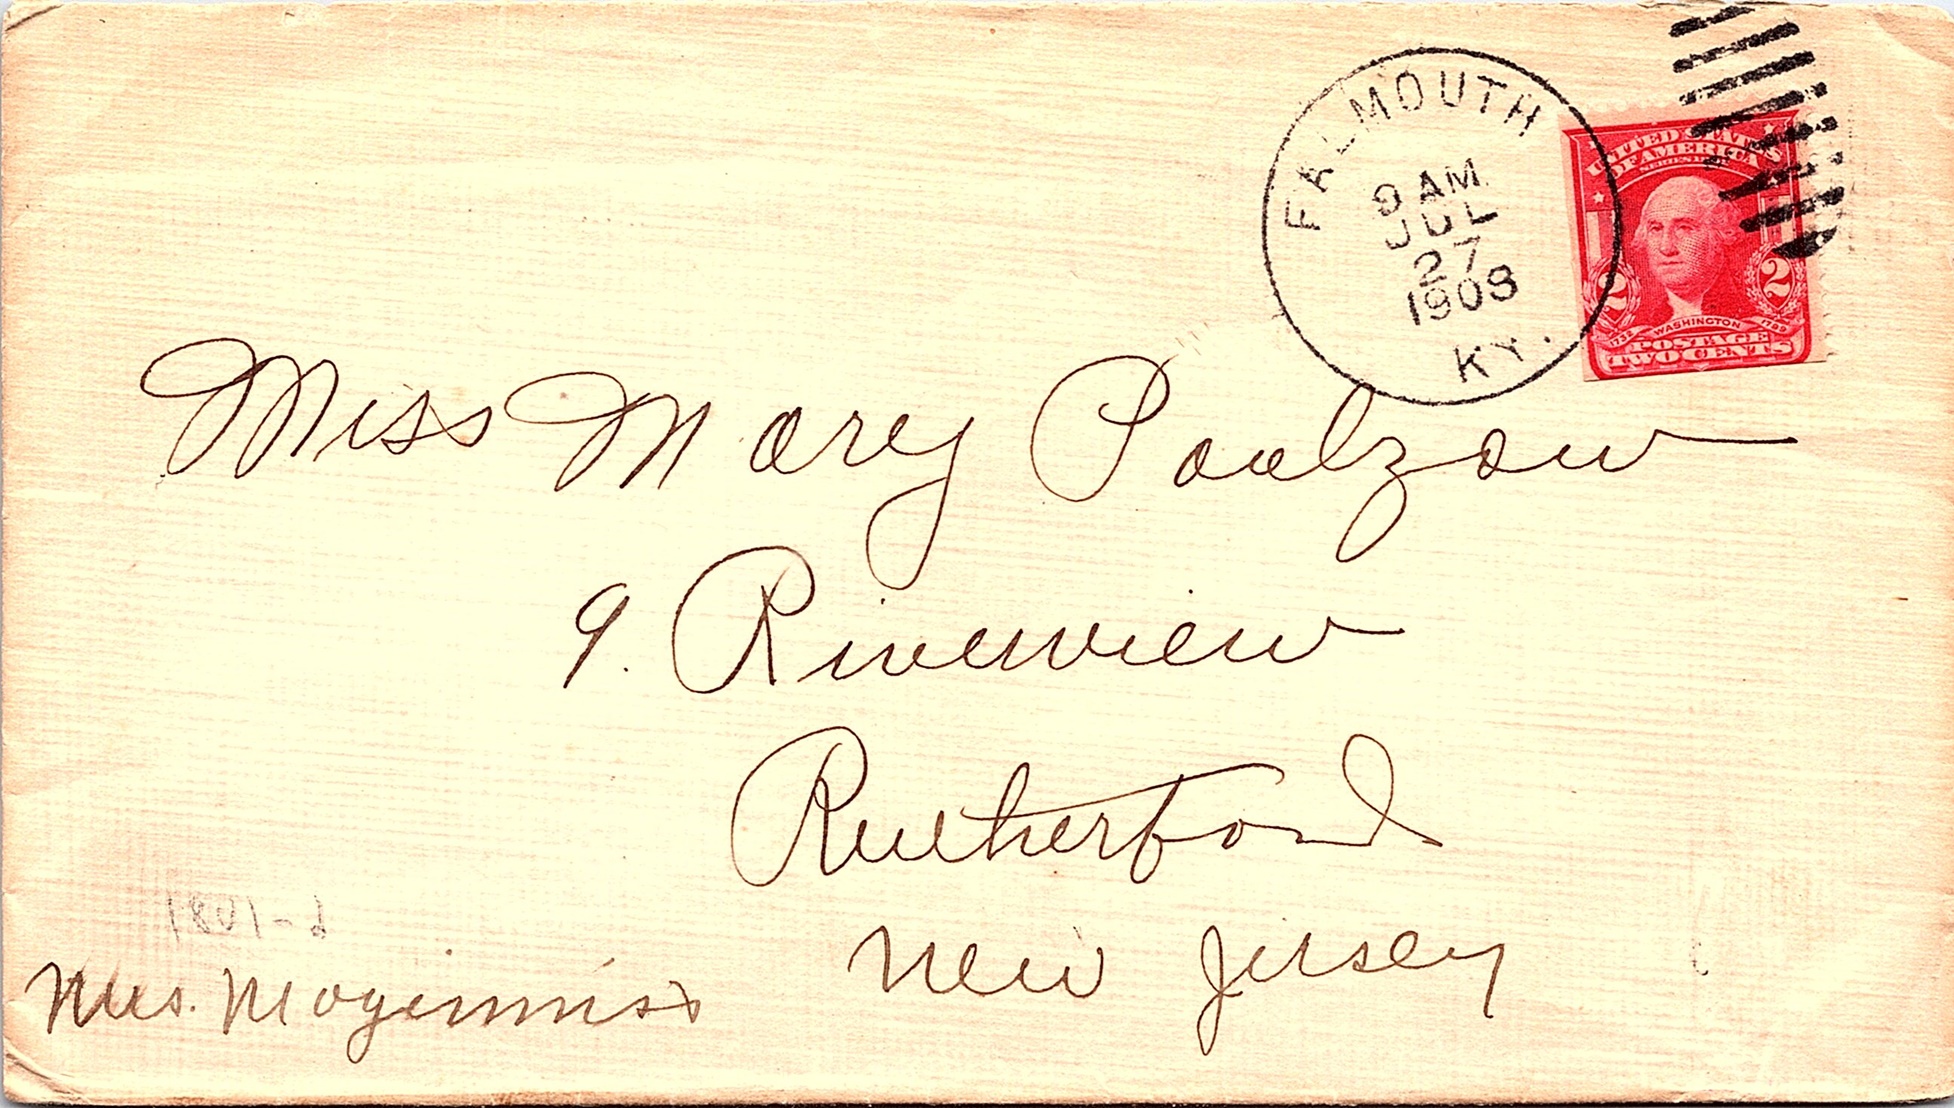 FALMOUTH
9 AM
JUL
27
1908
KY.
UNITED STATES
OF AMERICA
2 2
1732 WASHINGTON 1799
POSTAGE
TWO CENTS
Miss Mary Paulzow
9. Riverview
Rutherford
New Jersey
1801-d
Mrs. Moginniss